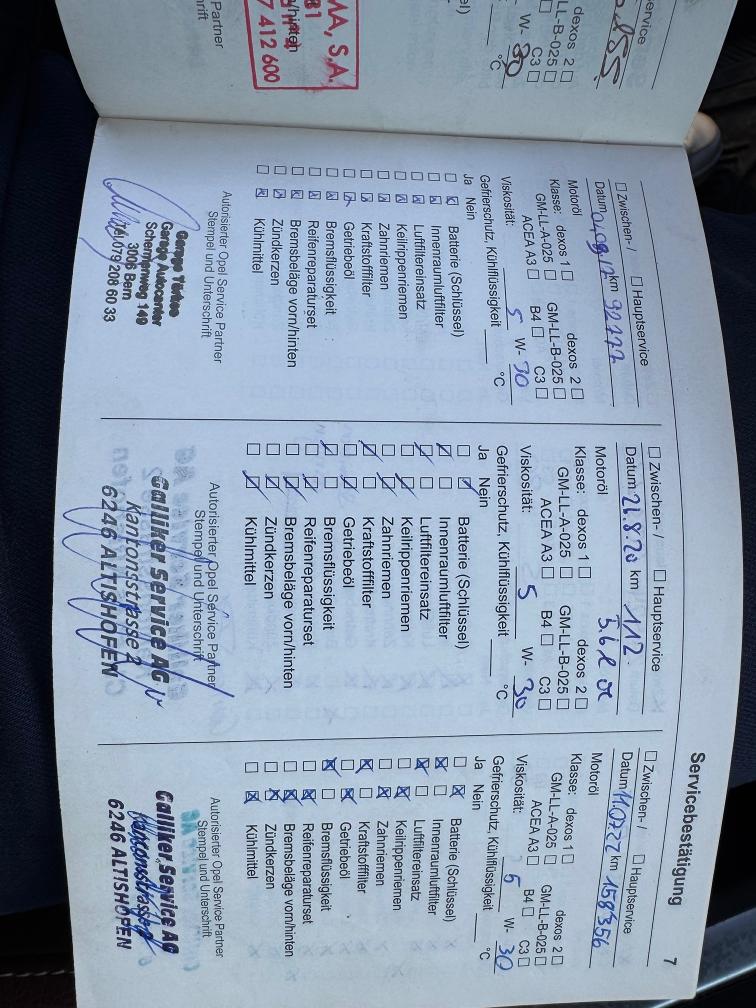 Servicebestätigung 7
service
dexos 2
LL-B-025
C3
W- 30
°C
el)
vorn/hinten
MA, S.A.
7 412 600
Partner
rift
Zwischen- / Hauptservice
Datum km 92177
Motoröl
Klasse: dexos 1 dexos 2
GM-LL-A-025 GM-LL-B-025
ACEA A3 B4 C3
Viskosität: 5 W- 30
Gefrierschutz, Kühlflüssigkeit °C
Ja Nein
Batterie (Schlüssel)
Innenraumluftfilter
Luftfiltereinsatz
Keilrippenriemen
Zahnriemen
Kraftstofffilter
Getriebeöl
Bremsflüssigkeit
Reifenreparaturset
Bremsbeläge vorn/hinten
Zündkerzen
Kühlmittel
Autorisierter Opel Service Partner
Stempel und Unterschrift
Garage Autocenter
Schermenweg 149
3006 Bern
Tel. 079 208 60 33
Zwischen- / Hauptservice
Datum 21.8.20 km 112.
Motoröl 5.6 l
Klasse: dexos 1 dexos 2
GM-LL-A-025 GM-LL-B-025
ACEA A3 B4 C3
Viskosität: 5 W- 30
Gefrierschutz, Kühlflüssigkeit °C
Ja Nein
Batterie (Schlüssel)
Innenraumluftfilter
Luftfiltereinsatz
Keilrippenriemen
Zahnriemen
Kraftstofffilter
Getriebeöl
Bremsflüssigkeit
Reifenreparaturset
Bremsbeläge vorn/hinten
Zündkerzen
Kühlmittel
Autorisierter Opel Service Partner
Stempel und Unterschrift
Galliker Service AG
Kantonsstrasse 2
6246 ALTISHOFEN
Zwischen- / Hauptservice
Datum 11.07.22 km 158356
Motoröl
Klasse: dexos 1 dexos 2
GM-LL-A-025 GM-LL-B-025
ACEA A3 B4 C3
Viskosität: 5 W- 30
Gefrierschutz, Kühlflüssigkeit °C
Ja Nein
Batterie (Schlüssel)
Innenraumluftfilter
Luftfiltereinsatz
Keilrippenriemen
Zahnriemen
Kraftstofffilter
Getriebeöl
Bremsflüssigkeit
Reifenreparaturset
Bremsbeläge vorn/hinten
Zündkerzen
Kühlmittel
Autorisierter Opel Service Partner
Stempel und Unterschrift
Galliker Service AG
Kantonsstrasse 2
6246 ALTISHOFEN